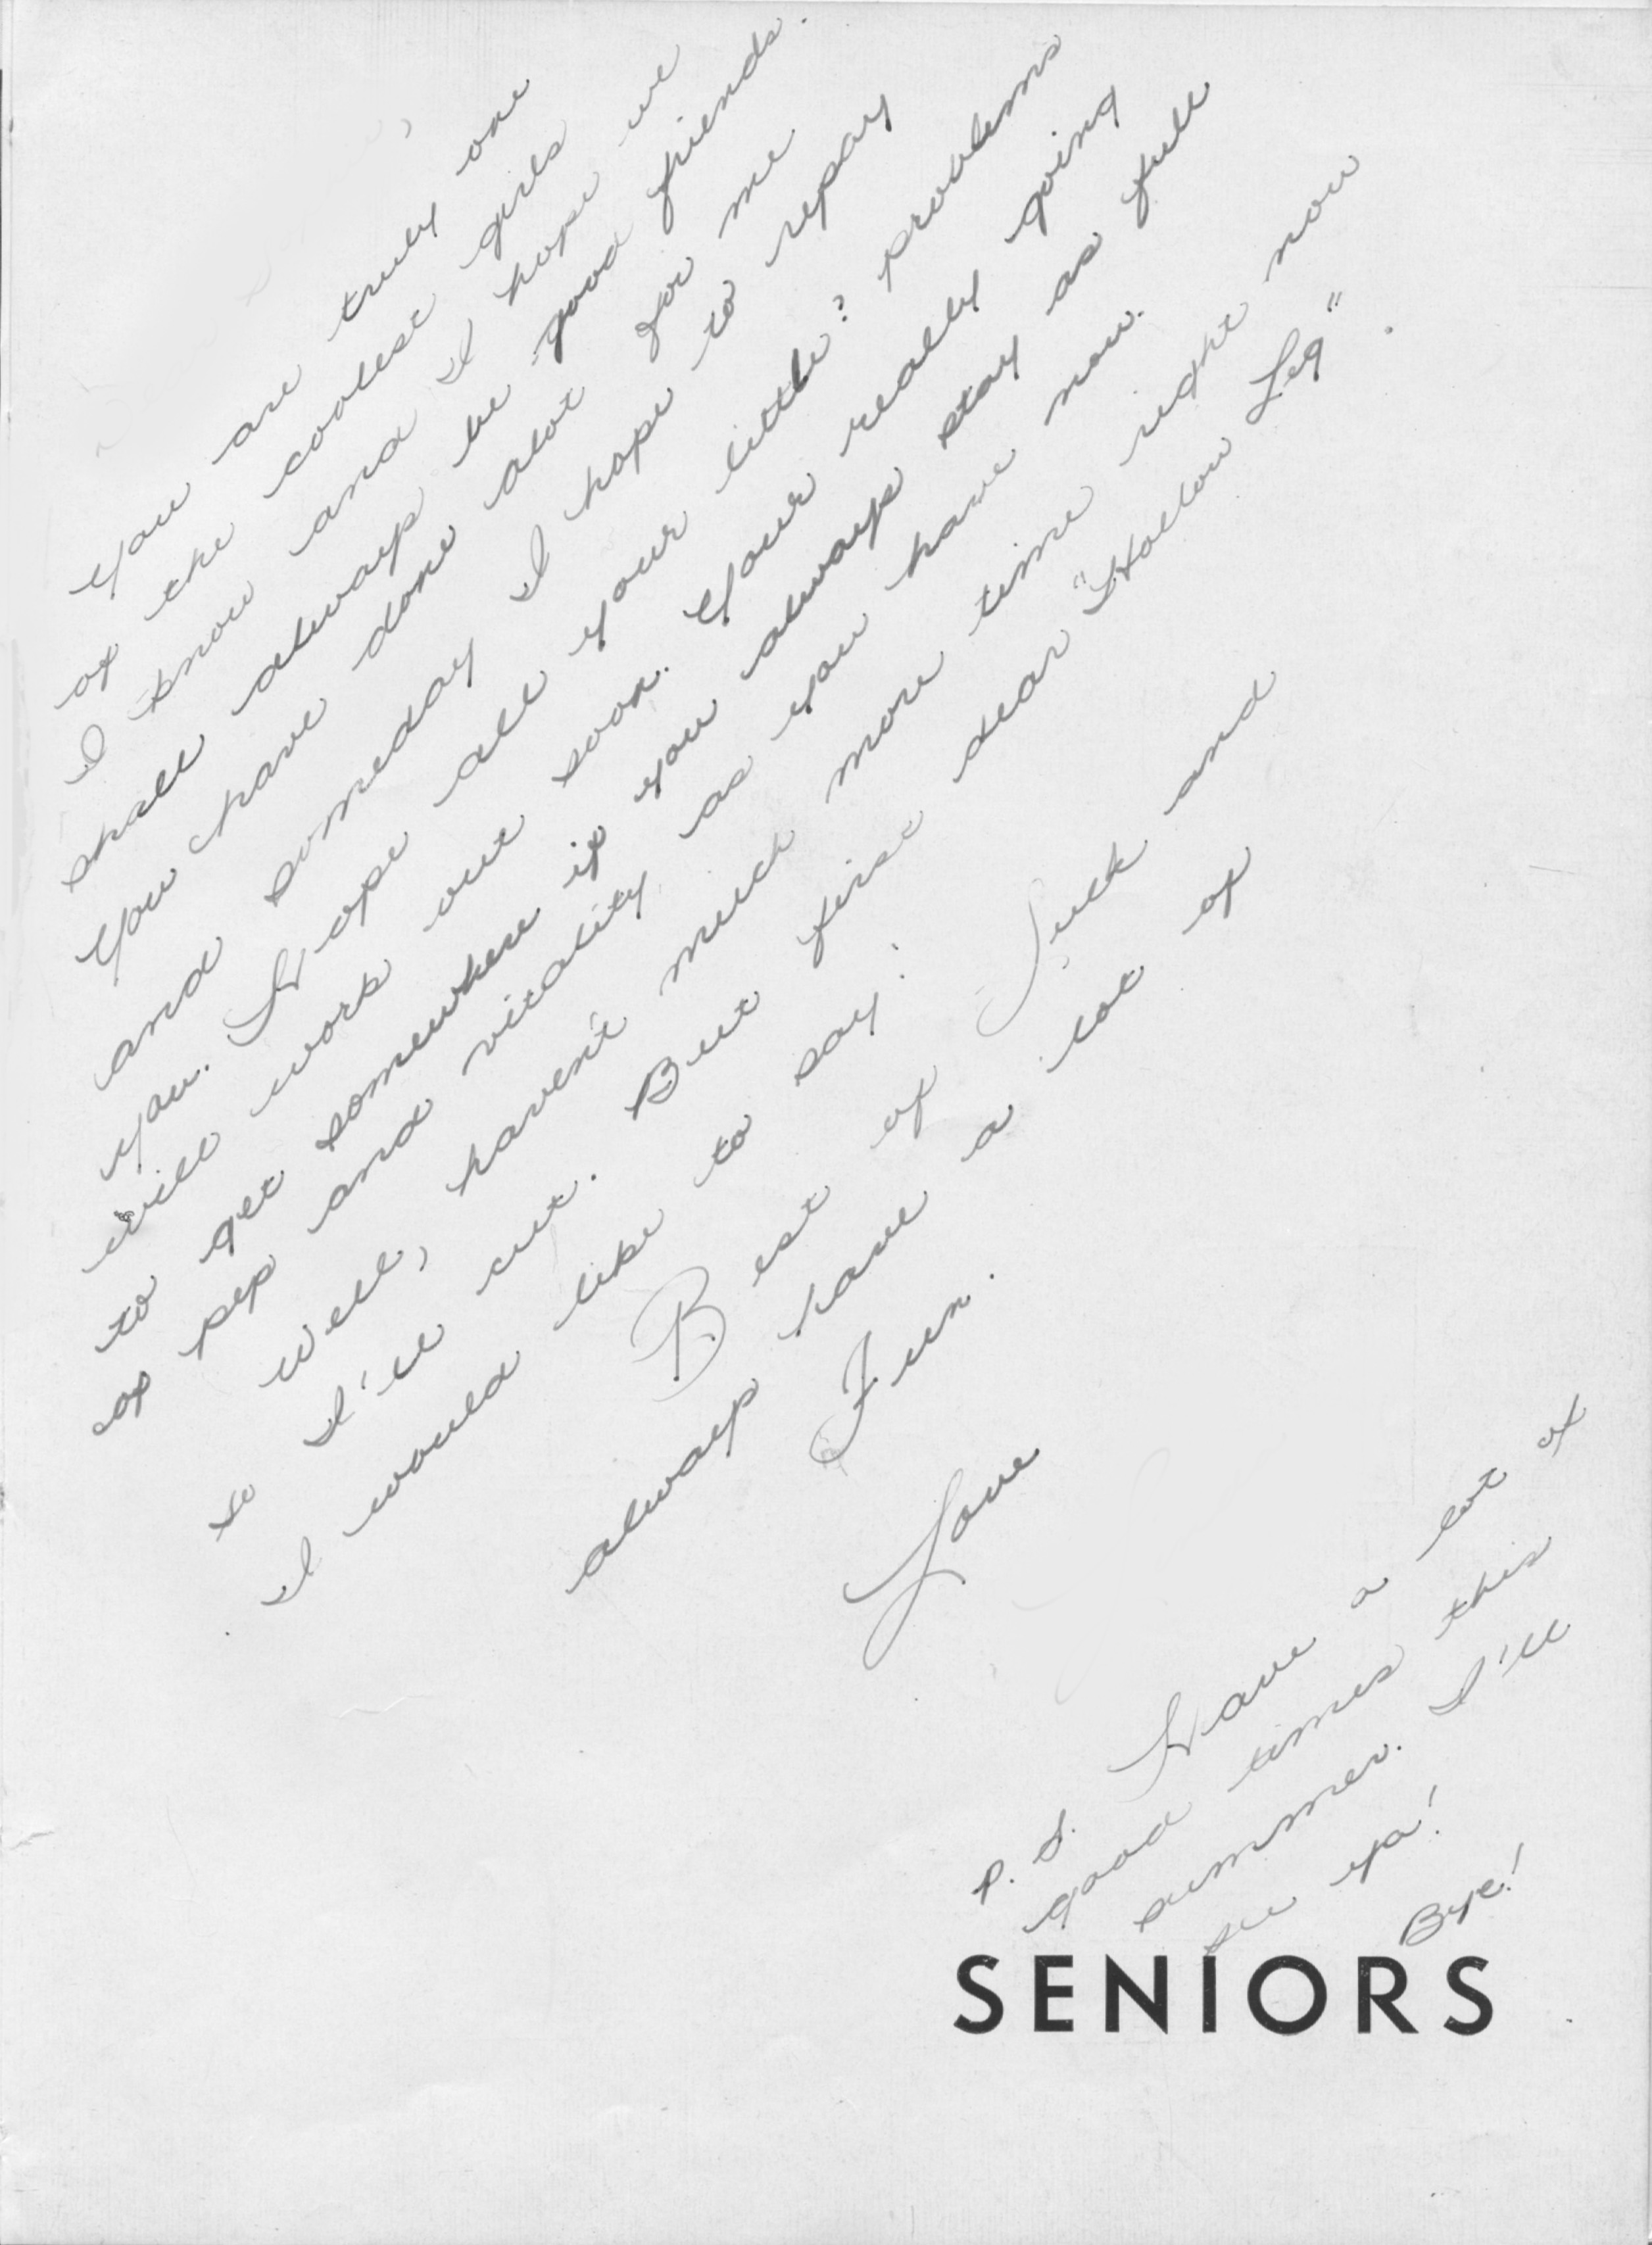 You are truly one
of the coolest girls
I know and I hope we
shall always be good friends.
You have done alot for me
and someday I hope to repay
you. Hope all your little? problems
will work out soon. Your really going
to get somewhere if you always stay as full
of pep and vitality as you have now.
Well, haven't much more time right now
so I'll cut. But first dear "Hollow Leg"
I would like to say:
Best of Luck and
always have a lot of
Fun.
Love
P.S. Have a lot of
good times this
summer. I'll
see ya!
Bye!
SENIORS